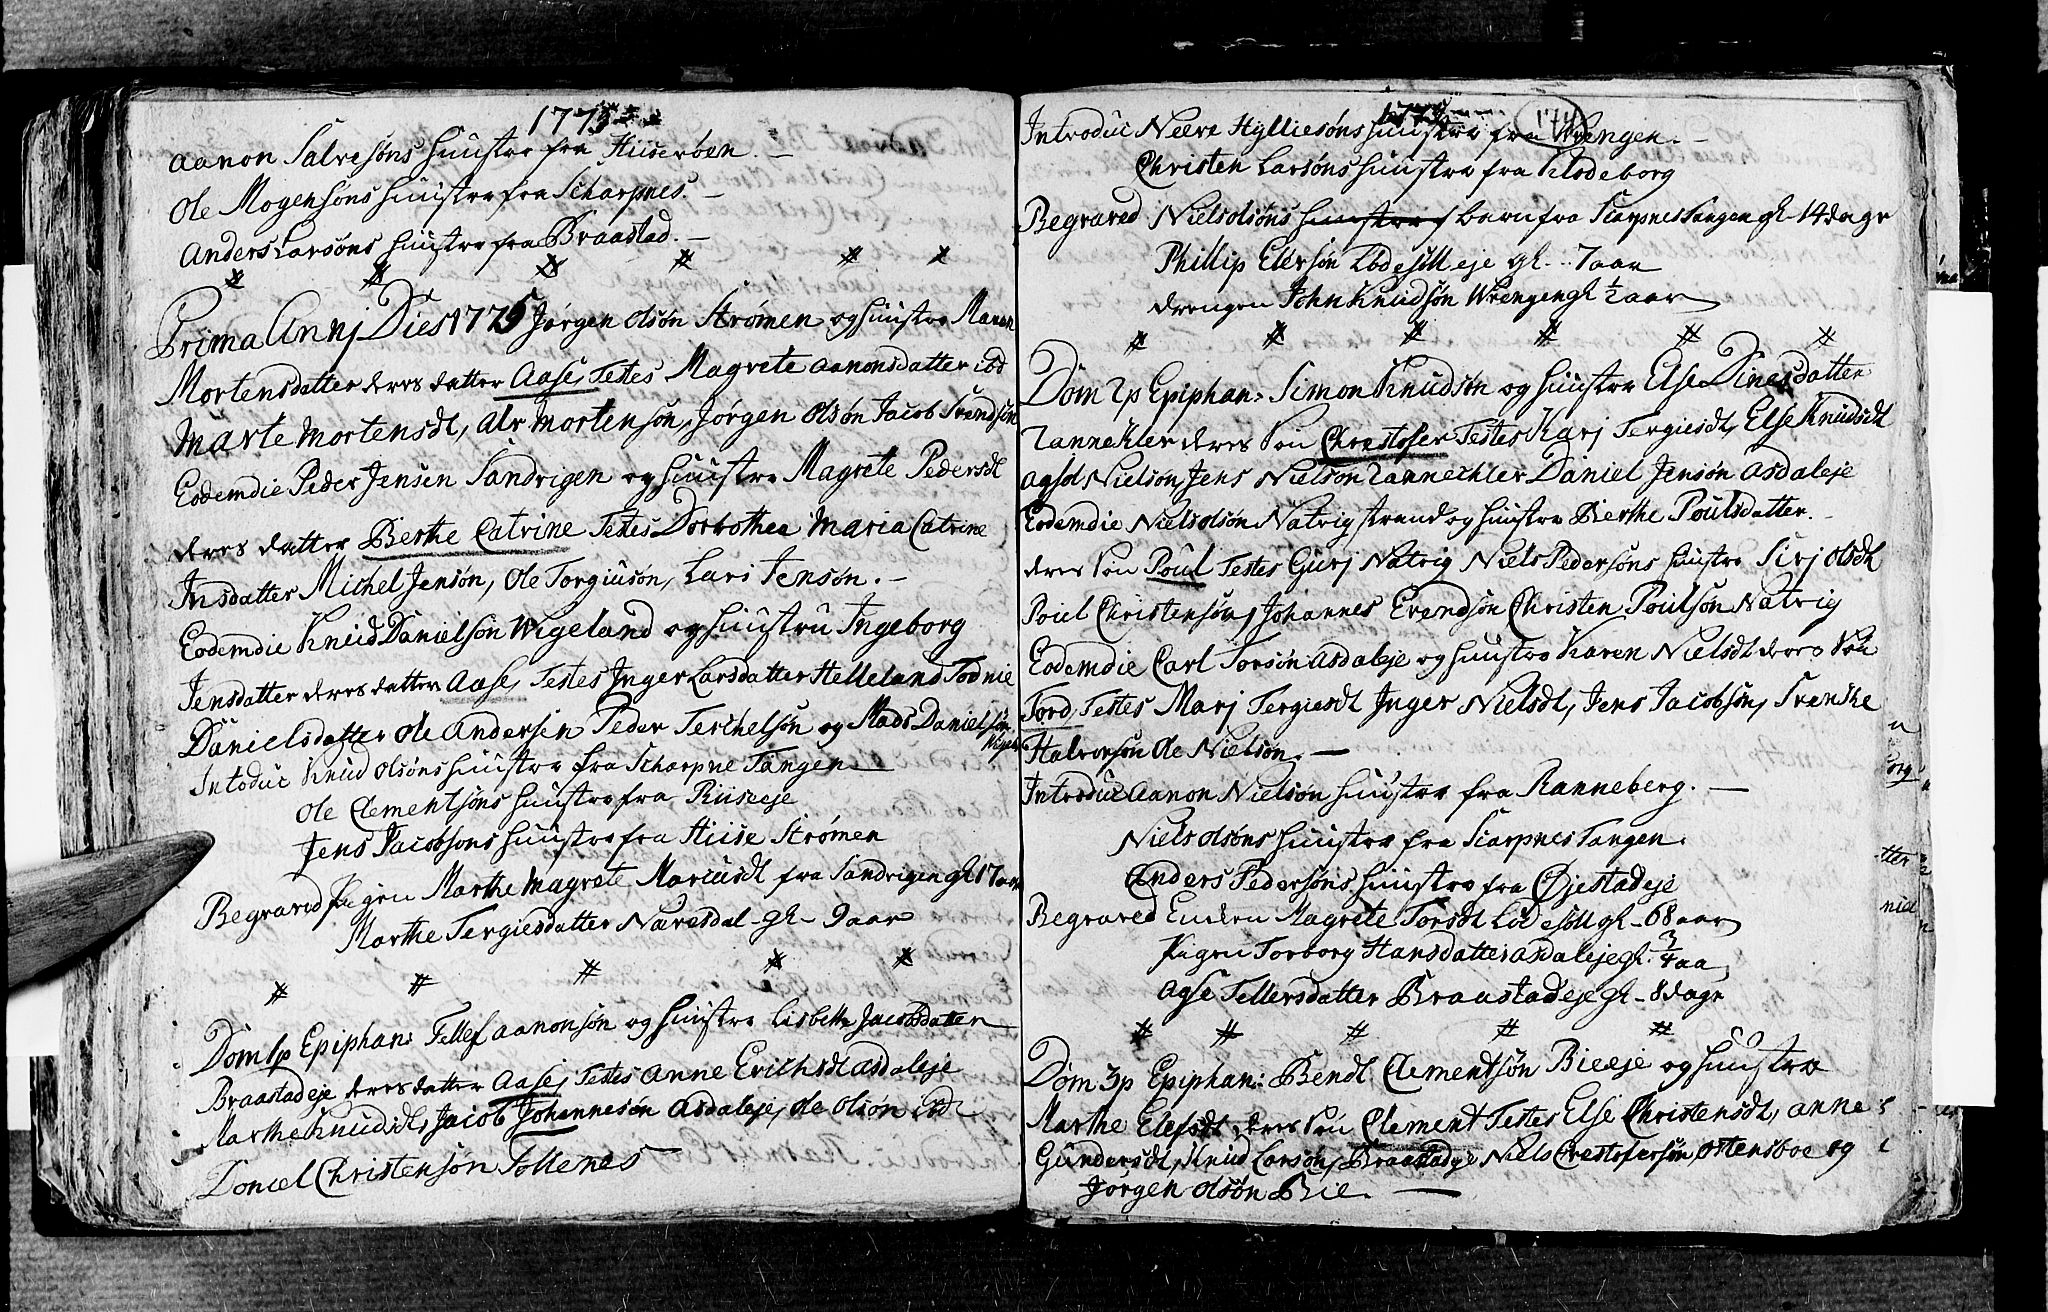 1775
Aanon Salvesøns hustro fra Hiiserøen. –
Ole Mogensøns hustro fra Scharpnes. –
Anders Larsøns hustro fra Braastad. –
Prima Annj Dies 1775 Jørgen Olsøn Strømen og hustro Maren
Mortensdatter deres datter Aase, Testes Magrete Aanonsdatter ibd
Marte Mortensdt, Alr Mortensøn, Jørgen Olsøn Jacob Svendsøn
Eodemdie Peder Jensen Sandvigen og hustro Magrete Pedersdt
deres datter Berthe Catrine Testes Dorothea Maria Catrine
Jnsdatter Michel Jensøn, Ole Torgiusøn, Lars Jensøn. –
Eodemdie Knud Danielsøn Wigeland og hustru Ingeborg
Jensdatter deres datter Aase, Testes Inger Larsdatter Helleland Todnie
Danielsdatter Ole Andersen Peder Terchelsøn og Mads Danielsøn
Intoduc Knud Olsøns hustro fra Scharpne Tangen
Ole Clementsøns hustro fra Riiseeje
Jens Jacobsøns hustro fra Hiise Strømen
Begraved Pigen Marthe Magrete Mariusdt fra Sandvigen gl 17 aar
Marthe Tergiesdatter Næresdal – gl – 9 aar
Dom 1 p Epiphan: Tellef Aanonsøn og hustro Lisbeth Jacobsdatter
Braastadeje deres datter Aase, Testes Anne Erichsdt Asdaleje
Marthe Knudsdt, Jacob Johannesøn Asdaleje, Ole Olsøn ibd
Daniel Christensøn Tollenes
1775 174
Introduc Neere Hylliesøns hustro fra Wrengen. –
Christen Larsøns hustro fra Klodeborg
Begraved Niels Olsøns hustroes barn fra Scarpnes Tangen gl – 14 dage
Phillip Elersøn Lødesøll eje gl – 7 aar
drengen John Knudsøn Wrengen gl 1/2 aar
Dom 2 p Epiphan: Simon Knudsøn og hustro Else Dinesdatter
Tannekler deres Søn Chrestofer Testes Karj Tergiesdt, Else Knudsdt
Nielsøn, Jens Nielsøn Tannechler Daniel Jensøn Asdaleje
Eodemdie Niels Olsøn Natvig strand og hustro Berthe Poulsdatter.
deres Søn Poul Testes Gurj Natvig Niels Pedersøns hustro Sirj Olsdt
Poul Christensøn, Johannes Evendsøn Christen Poulsøn Natvig
Eodemdie Carl Torsøn Asdaleje og hustro Karen Nielsdt deres Søn
Tord, Testes Marj Tergiesdt Inger Nielsdt, Jens Jacobsøn, Svenske
Halvorsøn Ole Nielsøn. –
Introduc Aanon Nielsøn hustro fra Ranneberg. –
Niels Olsøns hustro fra Scarpnes Tangen.
Anders Pedersøns hustro fra Øjestadeje
Begraved Enken Magrete Torsdt Lødesøll gl – 68 aar
Pigen Torborg Hansdatter Asdaleje gl. 3/4 aa
Aase Tellersdatter Braastadeje gl – 8 dage
Dom 3 p Epiphan: Bendt Clementsøn Bieeje og hustro
Marthe Elefsdt deres Søn Clement Testes Else Christensdt, Anne
Gundersdt, Knud Larsøn, Braastadeje Niels Crestofersøn, Ostensboe og
Jørgen Olsøn Bie. –